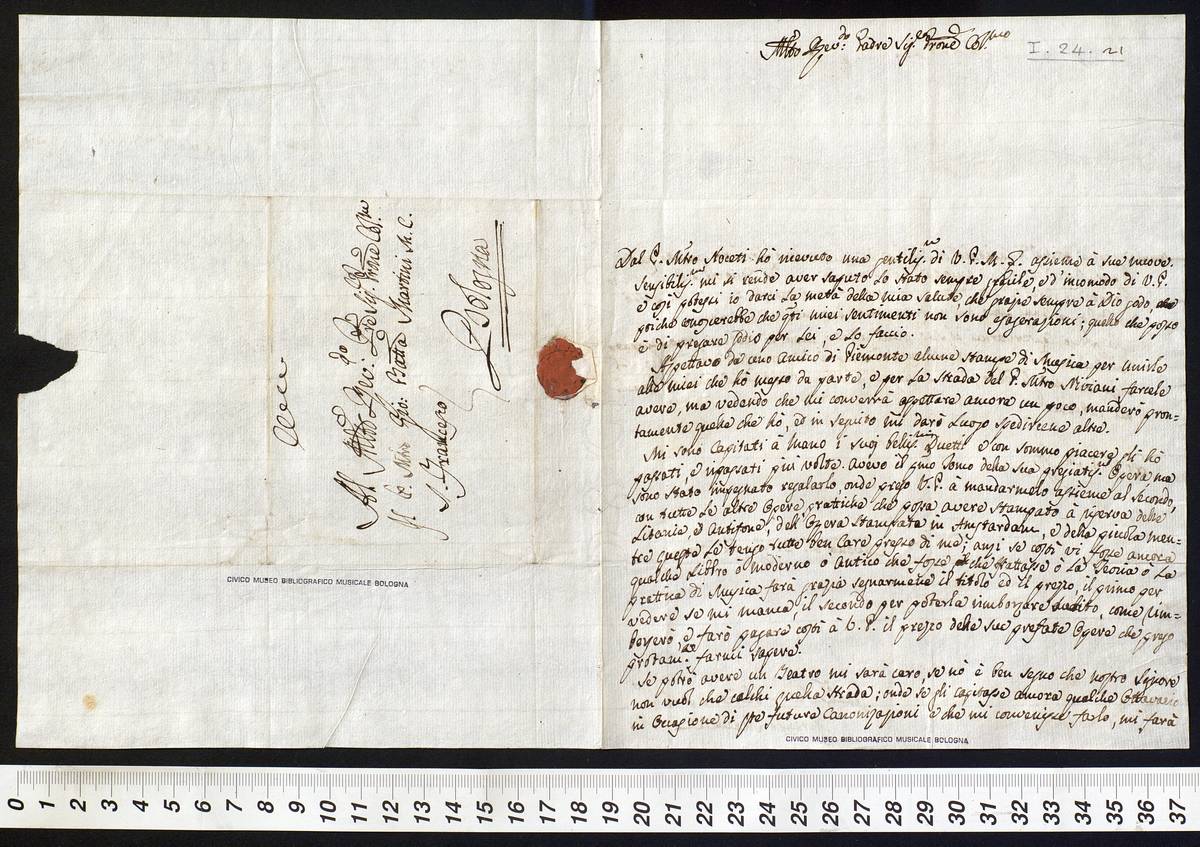 Al M.to Rev.do Pre Sig.r Prone Col.mo
Il P. Mro Gio: Batta Martini M. C.
S. Francesco
Bologna
CIVICO MUSEO BIBLIOGRAFICO MUSICALE BOLOGNA
M.to Rev.do Padre Sig.r Prone Col.mo
I. 24. 21
Dal P. Mro Noceti hò ricevuto una gentilis.ma di V. P. M. R. assieme à sue nuove.
Sensibilis.mo mi si rende aver saputo lo stato sempre gracile, e d'incomodo di V. P.
e così potessi io darci la metà della mia salute che grazie sempre à Dio godo
poiche conoscerebbe che questi miei sentimenti non sono esagerazioni; quello che posso
è di pregare Iddio per Lei, e lo faccio.
Aspettavo da uno Amico di Piemonte alcune stampe di Musica per unirle
alle miei che hò messo da parte, e per la strada del P. Mro Viviani farcele
avere, ma vedendo che mi converrà aspettare ancora un poco, manderò pron-
tamente quelle che hò, ed in seguito mi darò luogo spedircene altre.
Mi sono capitati à mano i suoi bellis.mi Duetti e con sommo piacere gli hò
passati, e ripassati più volte. avevo il primo tomo della sua preziatis.ma Opera ma
sono stato impegnato regalarlo, onde prego V. P. à mandarmelo assieme al secondo,
con tutte le altre Opere pratiche che possa avere stampato à riserva delle
Litanie, e Antifone, dell'Opera stampata in Amstardam, e della piccola men-
tre queste le tengo tutte ben care presso di me; anzi se costì vi fosse ancora
qualche Libro ò moderno ò antico che fosse che trattasse ò la Teoria ò la
prattica di Musica farà grazia segnarmene il titolo ed il prezzo, il primo per
vedere se mi manca, il secondo per poterla rimborsare subito, come rim-
borserò, e farò pagare costì à V. P. il prezzo delle sue prefate Opere che prego
farmi sapere.
Se potrò avere un Teatro mi sarà caro, se nò è ben segno che nostro Signore
non vuol che calchi quella strada; onde se gli capitasse ancora qualche Ottavario
in occasione di future Canonizazioni e che mi convenisse farlo, mi farà
CIVICO MUSEO BIBLIOGRAFICO MUSICALE BOLOGNA
0 1 2 3 4 5 6 7 8 9 10 11 12 13 14 15 16 17 18 19 20 21 22 23 24 25 26 27 28 29 30 31 32 33 34 35 36 37